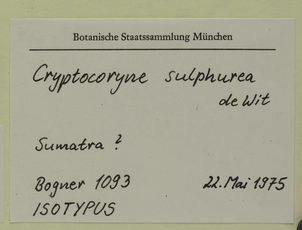 Botanische Staatssammlung München
Cryptocoryne sulphurea
de Wit
Sumatra ?
Bogner 1093 22. Mai 1975
ISOTYPUS